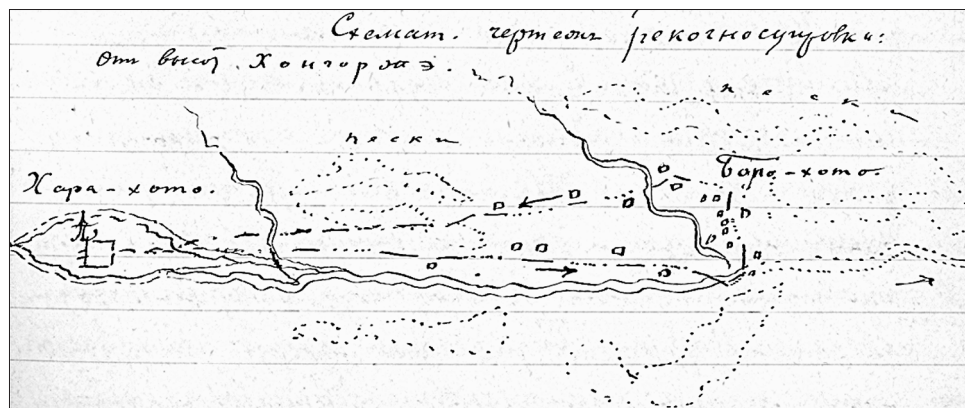 Схемат. чертежъ рекогносцировки:
отъ высот Хонгорджэ.
пески
пески
Хара-хото.
Боро-хото.